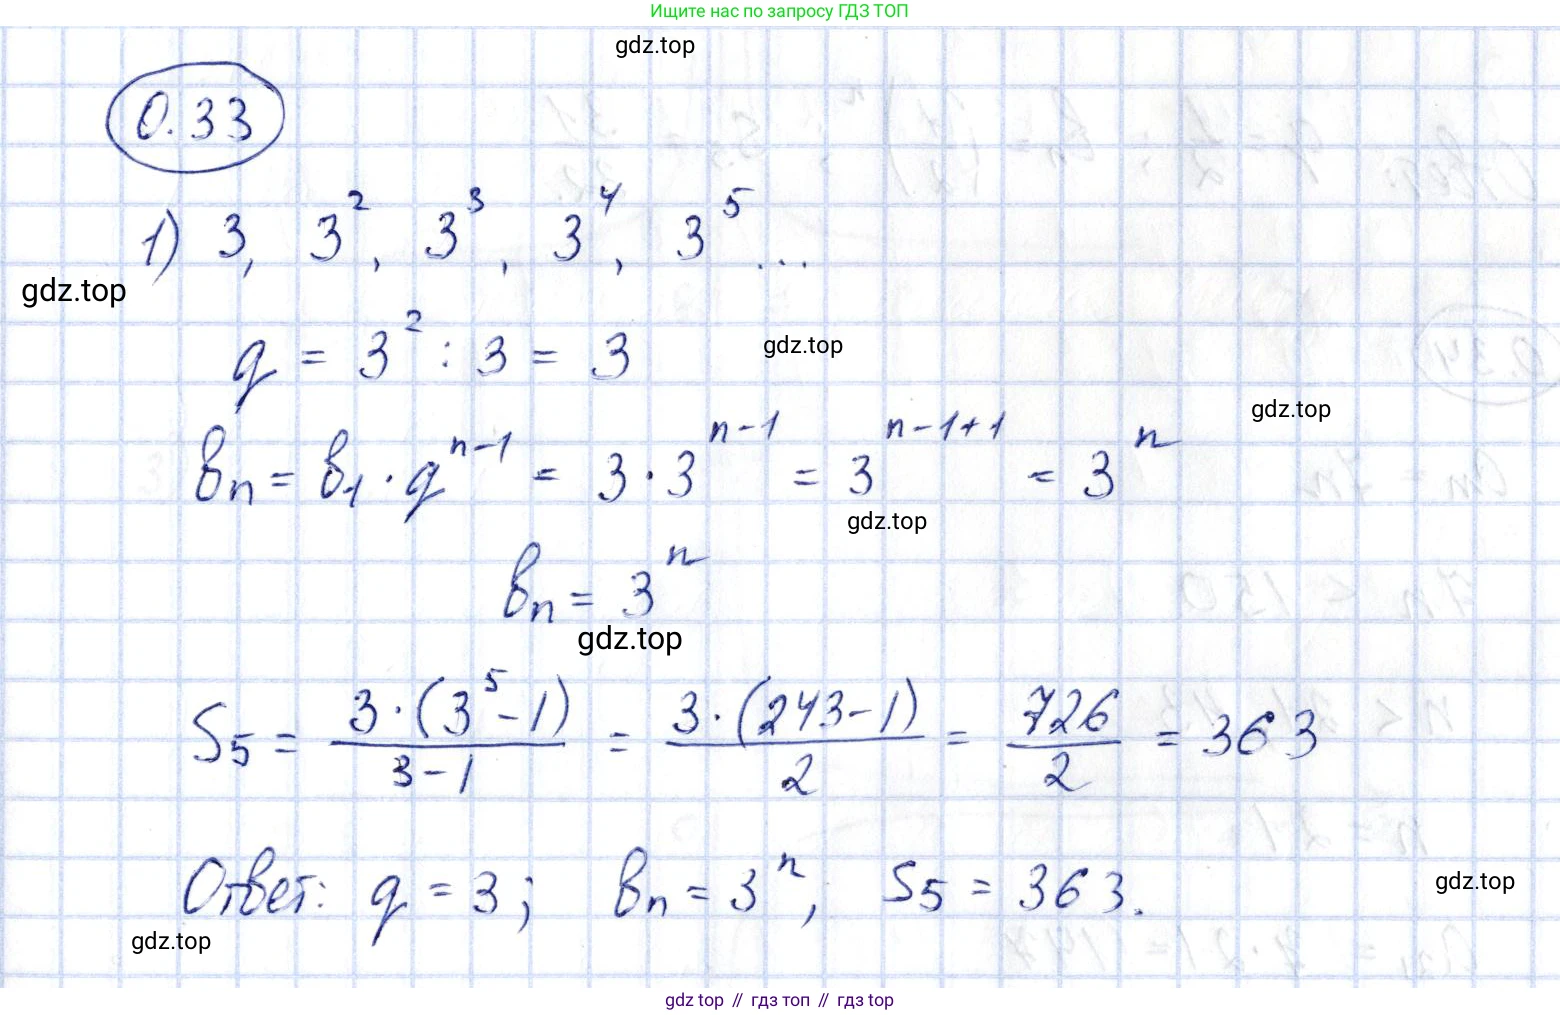 Ищите нас по запросу ГДЗ ТОП
gdz.top
0.33
1) 3, 3², 3³, 3⁴, 3⁵ ...
gdz.top
q = 3² : 3 = 3
gdz.top
gdz.top
bₙ = b₁ · qⁿ⁻¹ = 3 · 3ⁿ⁻¹ = 3ⁿ⁻¹⁺¹ = 3ⁿ
gdz.top
bₙ = 3ⁿ
gdz.top
S₅ = 3·(3⁵-1)/3-1 = 3·(243-1)/2 = 726/2 = 363
Ответ: q = 3; bₙ = 3ⁿ; S₅ = 363.
gdz.top
gdz.top
gdz top // гдз топ // гдз top